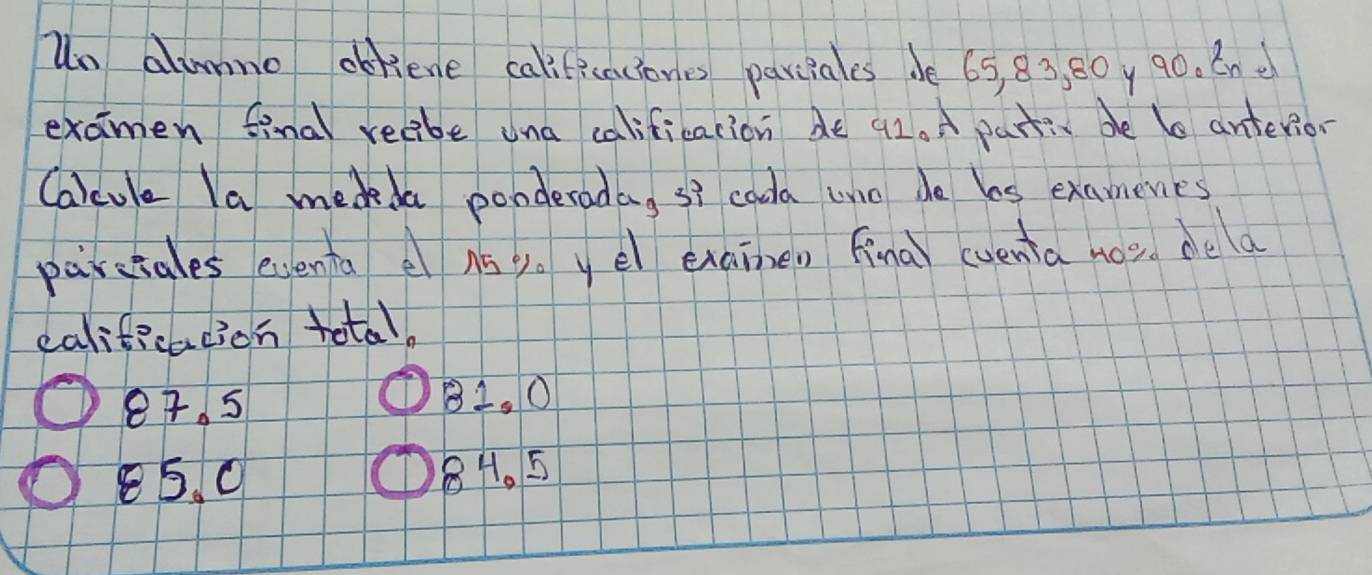 Un alumno obtiene calificaciones parciales de 65, 83, 80 y 90. En el
exámen final recibe una calificación de 92. A partir de lo anterior
Calcule la medida ponderada, si cada uno de los examenes
parciales cuenta el 15% y el exámen final cuenta 40% dela
calificación total.
87.5 82.0
85.0 84.5